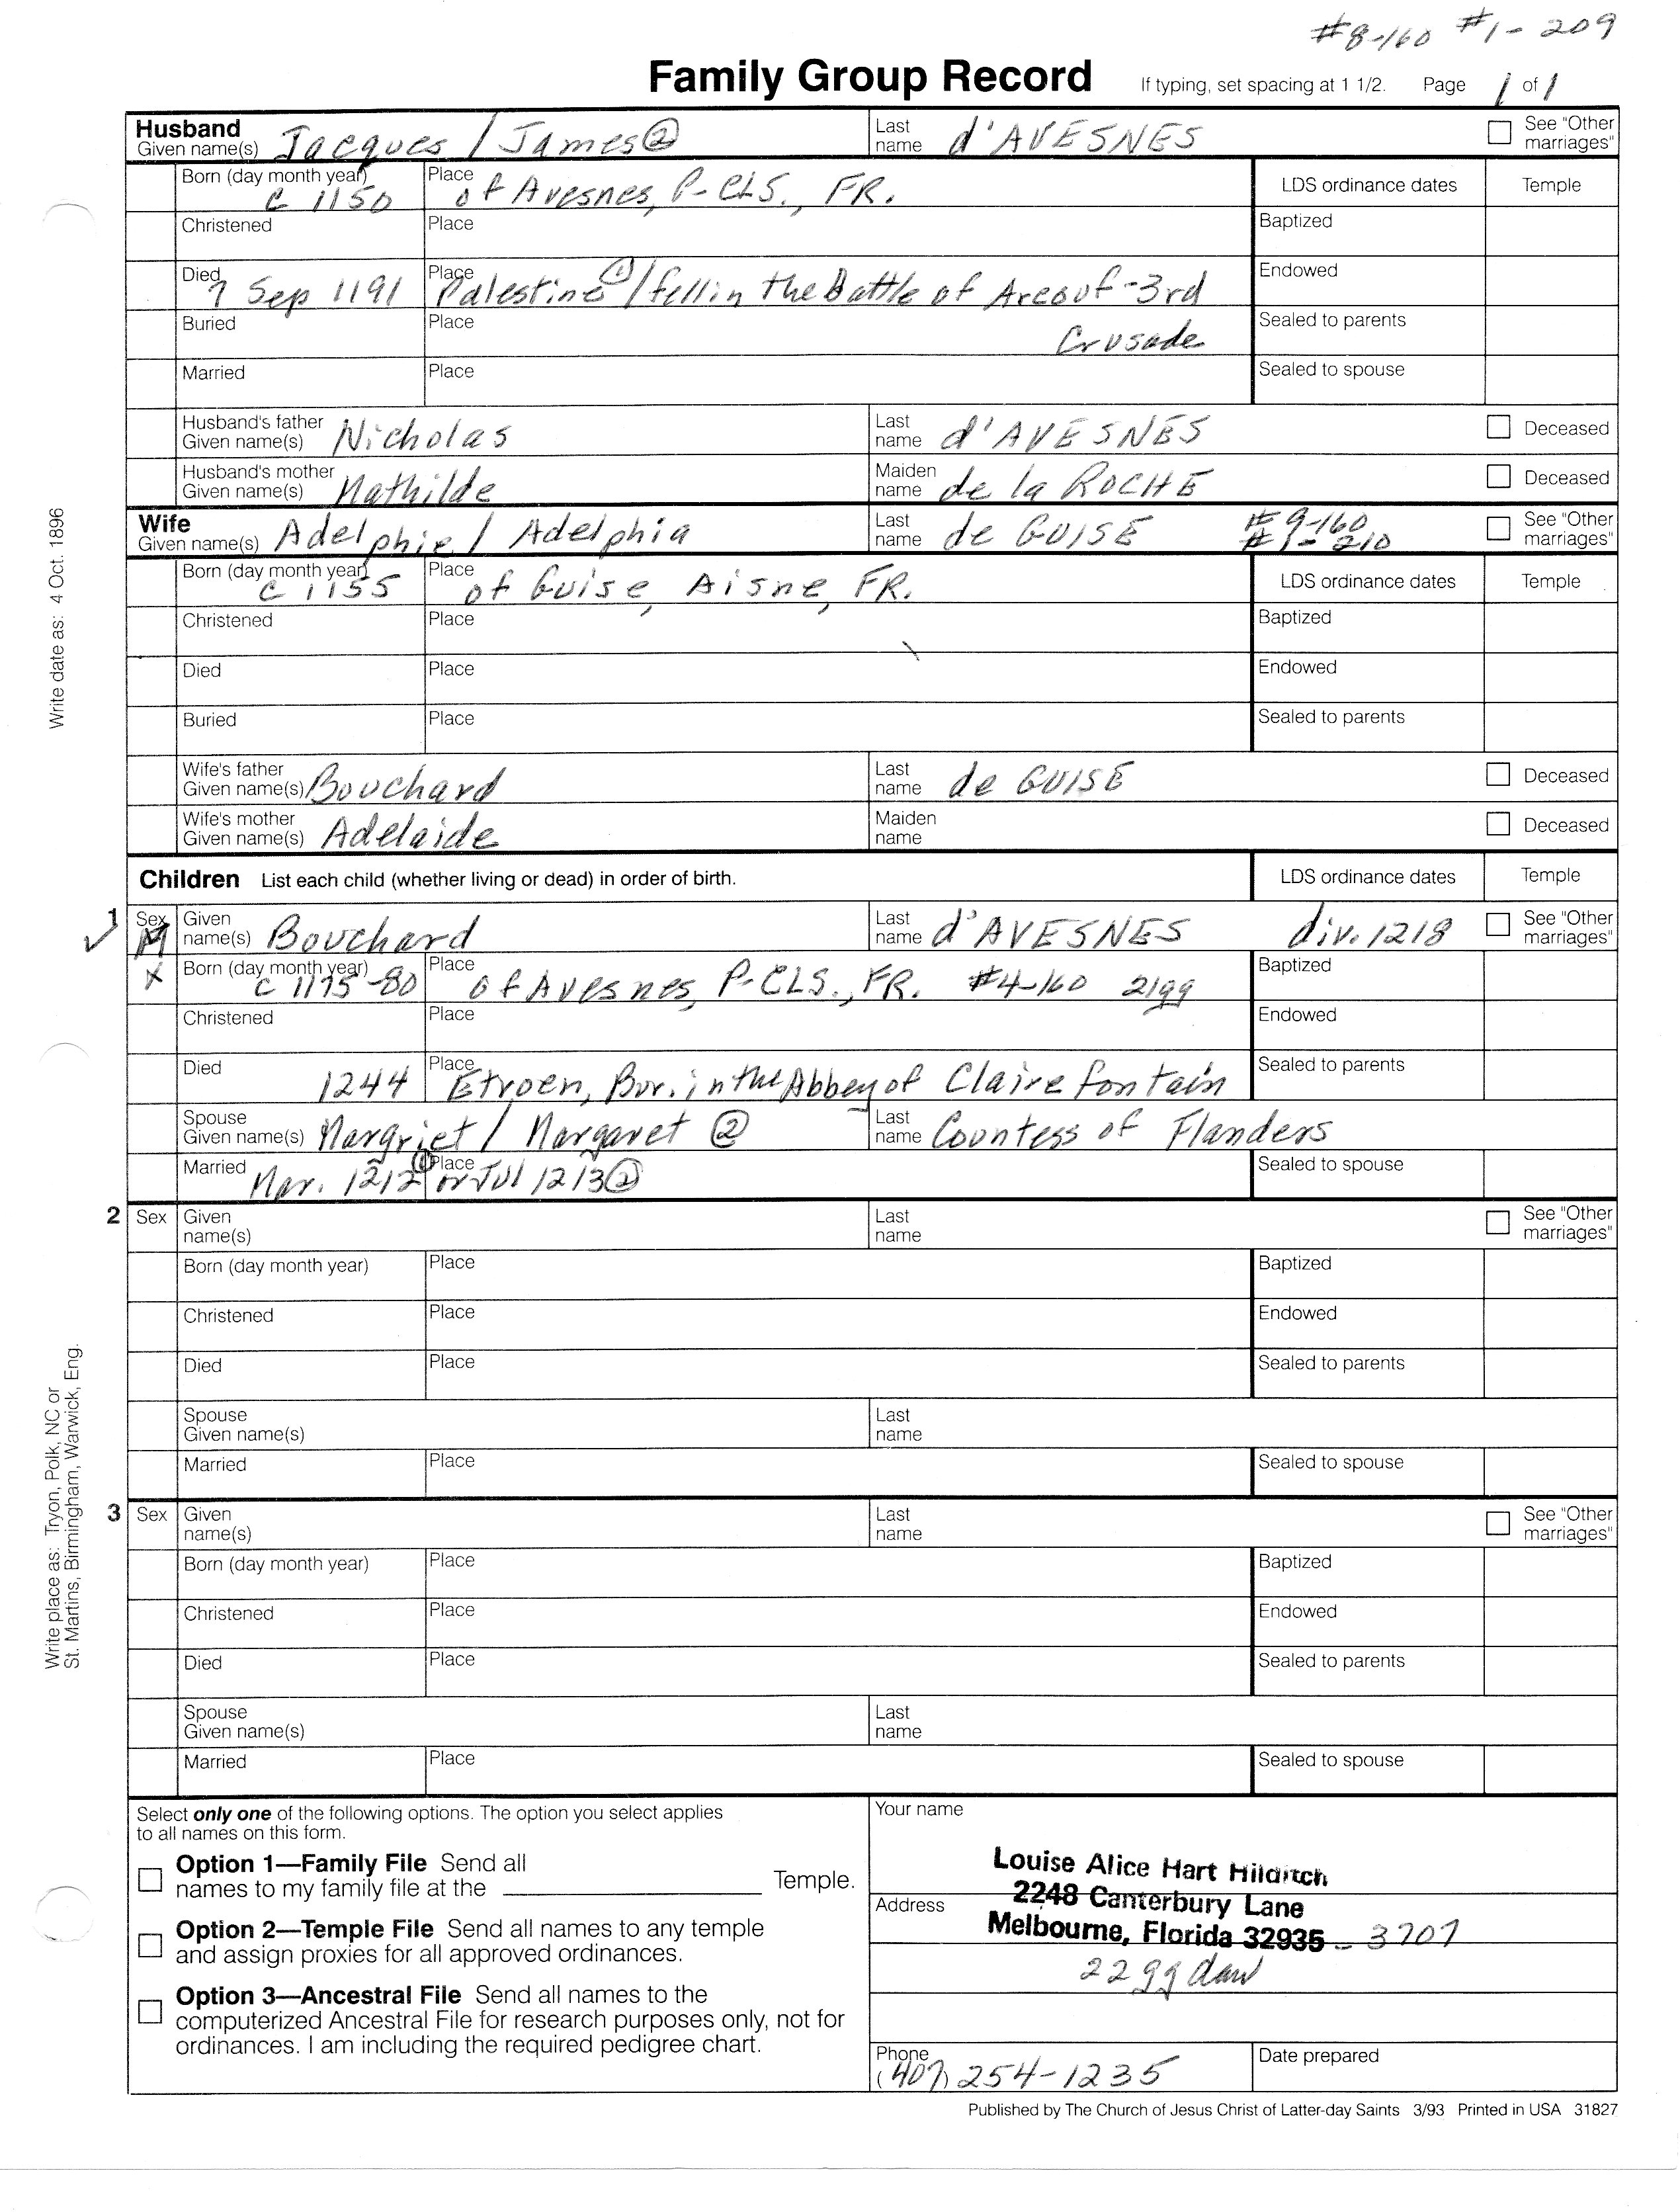 #8-160 #1-209
Family Group Record If typing, set spacing at 1 1/2. Page 1 of 1
Husband
Given name(s) Jacques / James② Last name d'AVESNES See "Other marriages"
Born (day month year) c 1150 Place of Avesnes, P-CLS., FR. LDS ordinance dates Temple
Christened Place Baptized
Died 7 Sep 1191 Place Palestine① / fell in the Battle of Arsouf - 3rd Endowed
Buried Place Crusade Sealed to parents
Married Place Sealed to spouse
Husband's father Given name(s) Nicholas Last name d'AVESNES Deceased
Husband's mother Given name(s) Mathilde Maiden name de la ROCHE Deceased
Wife
Given name(s) Adelphie / Adelphia Last name de GUISE #9-160 #1-210 See "Other marriages"
Born (day month year) c 1155 Place of Guise, Aisne, FR. LDS ordinance dates Temple
Christened Place Baptized
Died Place Endowed
Buried Place Sealed to parents
Wife's father Given name(s) Bouchard Last name de GUISE Deceased
Wife's mother Given name(s) Adelaide Maiden name Deceased
Children List each child (whether living or dead) in order of birth. LDS ordinance dates Temple
1 Sex M Given name(s) Bouchard Last name d'AVESNES div. 1218 See "Other marriages"
X Born (day month year) c 1175-80 Place of Avesnes, P-CLS., FR. #4-160 21gg Baptized
Christened Place Endowed
Died 1244 Place Etroen, Bur. in the Abbey of Claire fontain Sealed to parents
Spouse Given name(s) Margriet / Margaret ② Last name Countess of Flanders
Married Mar. 1212① Place or Jul 1213② Sealed to spouse
2 Sex Given name(s) Last name See "Other marriages"
Born (day month year) Place Baptized
Christened Place Endowed
Died Place Sealed to parents
Spouse Given name(s) Last name
Married Place Sealed to spouse
3 Sex Given name(s) Last name See "Other marriages"
Born (day month year) Place Baptized
Christened Place Endowed
Died Place Sealed to parents
Spouse Given name(s) Last name
Married Place Sealed to spouse
Select only one of the following options. The option you select applies
to all names on this form.
Option 1—Family File Send all
names to my family file at the Temple.
Option 2—Temple File Send all names to any temple
and assign proxies for all approved ordinances.
Option 3—Ancestral File Send all names to the
computerized Ancestral File for research purposes only, not for
ordinances. I am including the required pedigree chart.
Your name
Louise Alice Hart Hilditch
Address 2248 Canterbury Lane
Melbourne, Florida 32935 - 3707
22gg dau
Phone (407) 254-1235 Date prepared
Published by The Church of Jesus Christ of Latter-day Saints 3/93 Printed in USA 31827
Write date as: 4 Oct. 1896
Write place as: Tryon, Polk, NC or
St. Martins, Birmingham, Warwick, Eng.